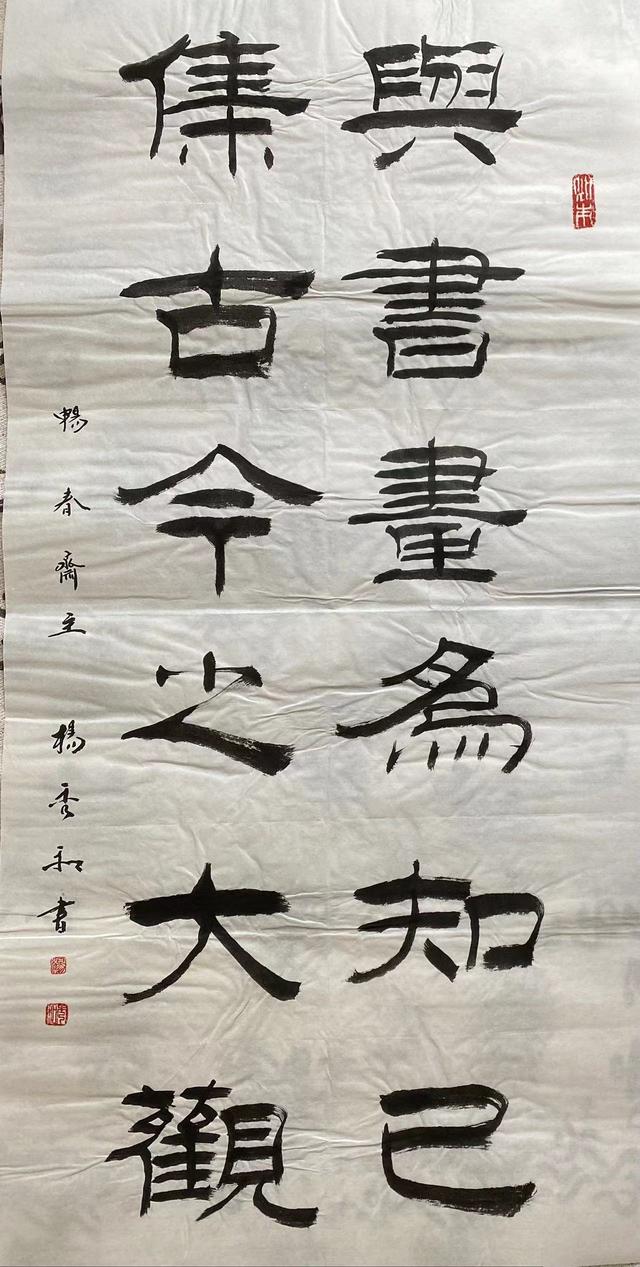 與書畫為知己
集古今之大觀
暢春齋主 楊秀和書